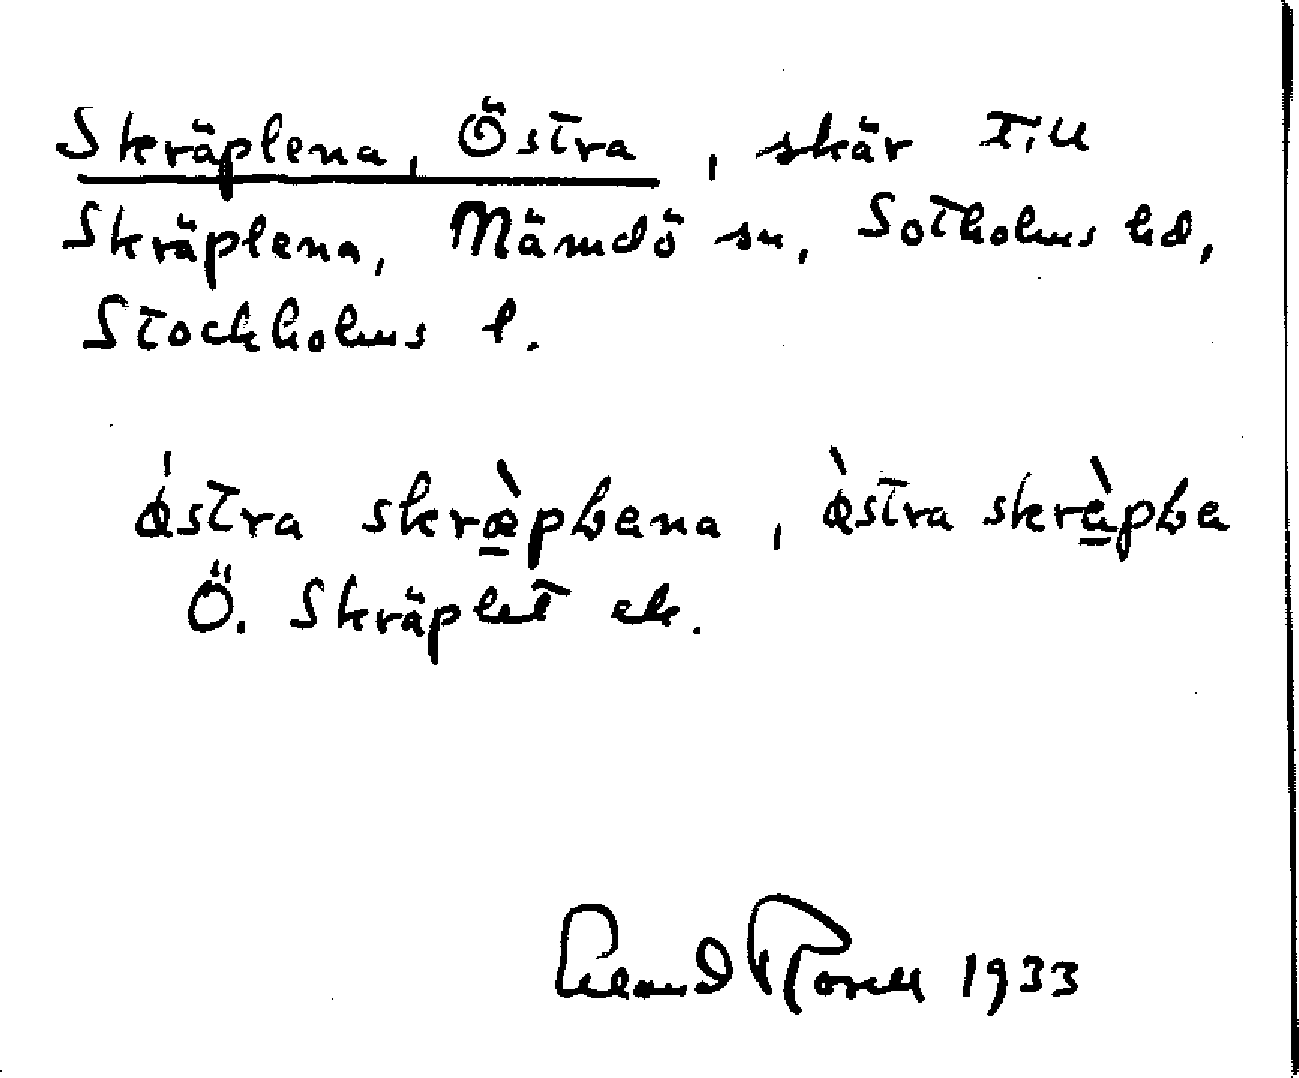 Skräplena, Östra, skär till
Skräplena, Nämdö sn, Sotholms hd,
Stockholms l.
ǿstra skræ̀pLena, ø̀stra skræ̀pLe
Ö. Skräplet ek.
Erland Rosell 1933